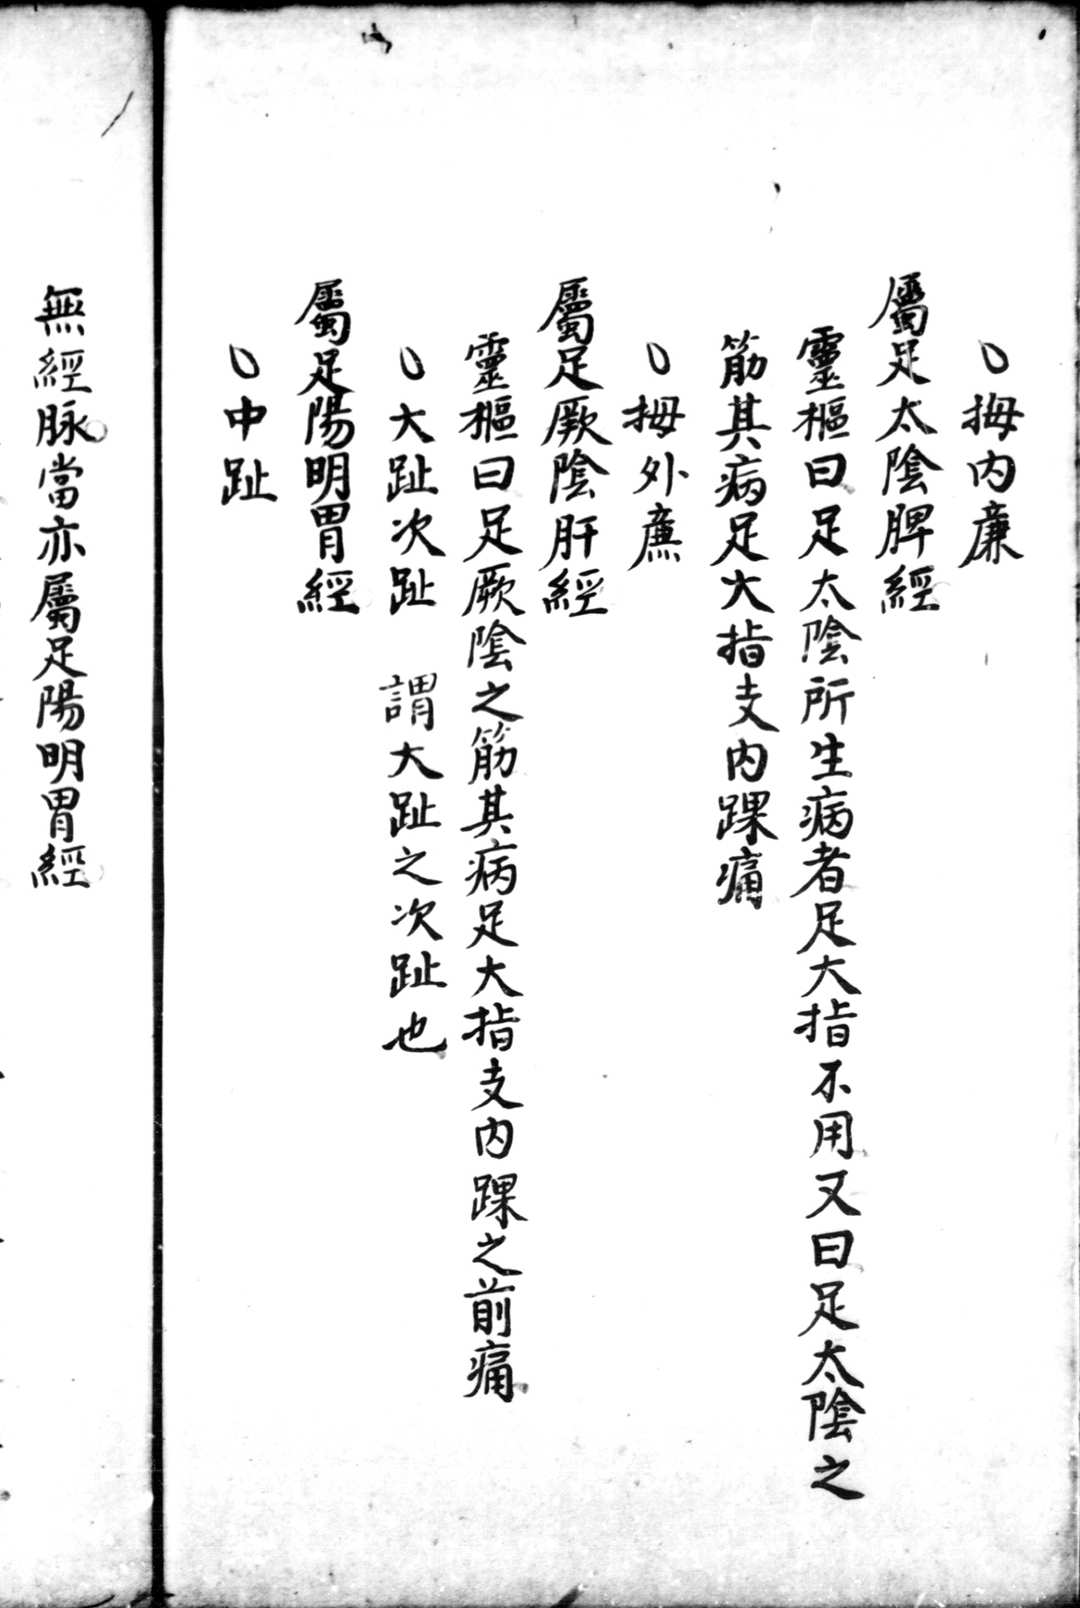 拇內廉
屬足太陰脾經
靈樞曰足太陰所生病者足大指不用又曰足太陰之
筋其病足大指支內踝痛
拇外廉
屬足厥陰肝經
靈樞曰足厥陰之筋其病足大指支內踝之前痛
大趾次趾 謂大趾之次趾也
屬足陽明胃經
中趾
無經脉當亦屬足陽明胃經